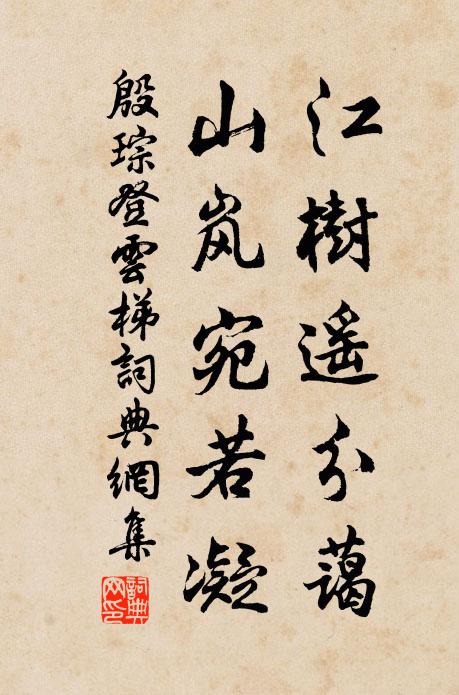 江樹遥分藹
山岚宛若凝
殷琮登雲梯詞典網集
詞典网印